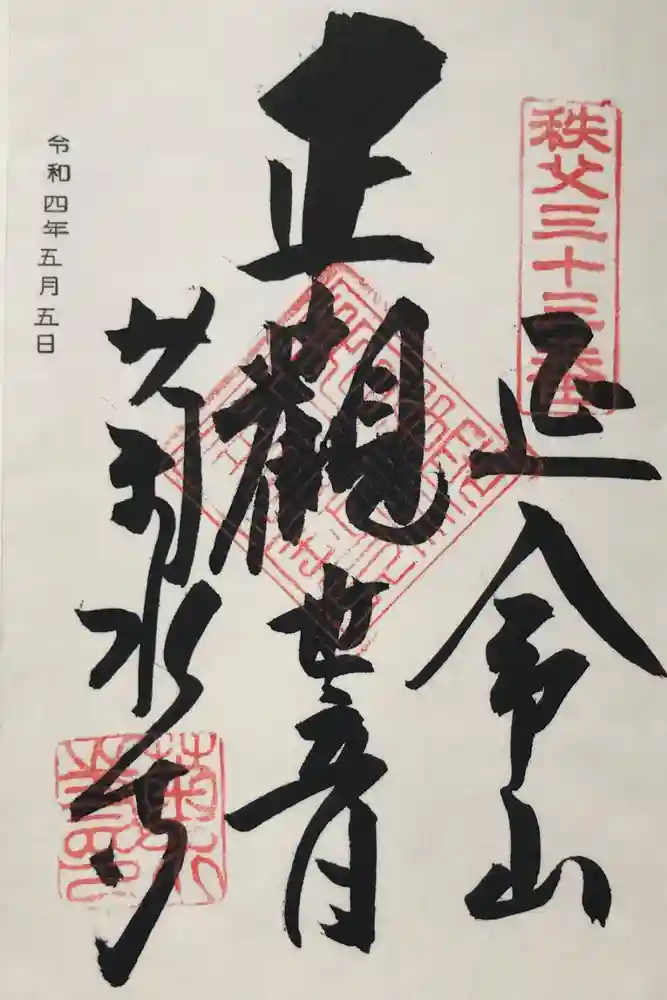 秩父三十三番
延命山
正觀世音
菊水寺
菊水寺印
令和四年五月五日